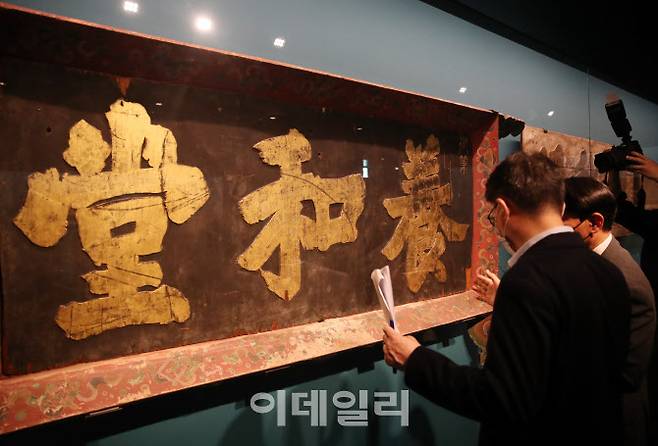 堂和養
이데일리